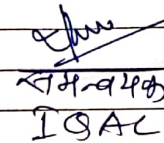 समन्वयक
IQAC